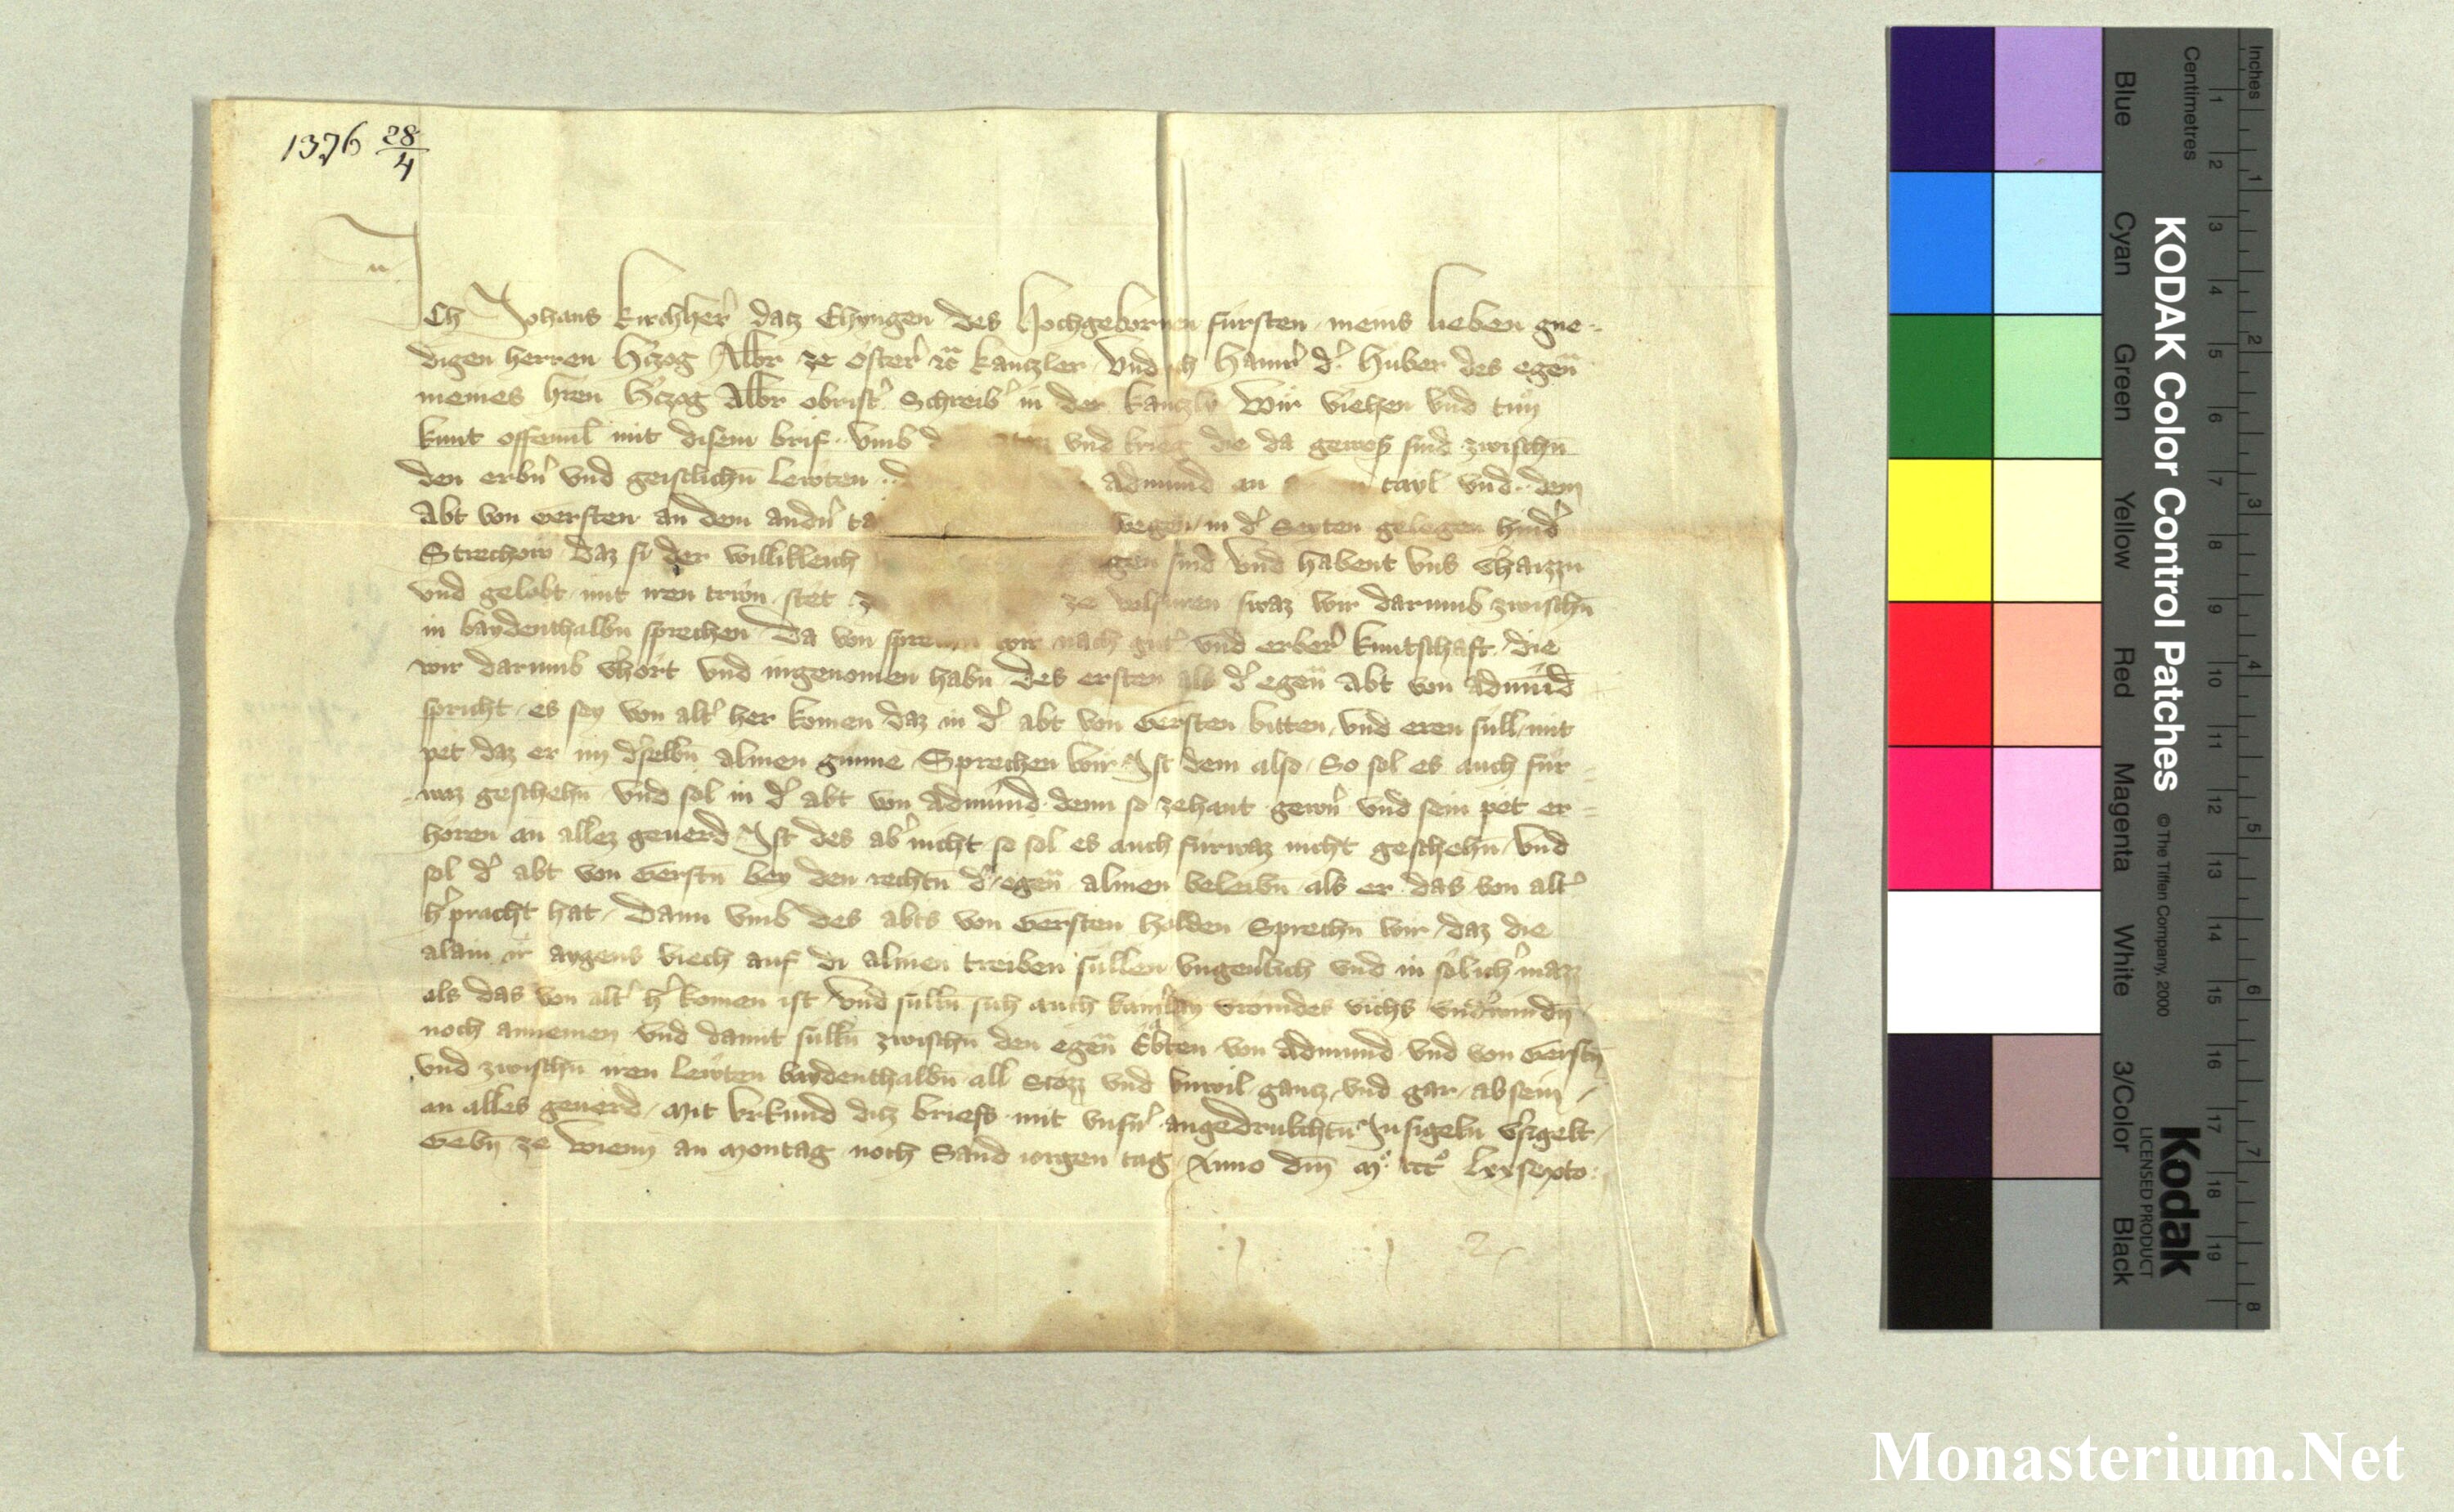 1376 28/4
Ich Johans kirchher datz Ehyngen des Hochgebornen fürsten meins lieben gne-
digen herren Hʼczog Albr ze Österʼ etc kanczler Vnd ich Hannsʼ dʼ Huber des egen
meines hren Hʼczog Albr obristʼ Schreibʼ in der kanczly Wir viehen vnd tun
kunt offennl mit disem brif vmb vnd krieg die da gewes sind zwischn
den erbn vnd geistlichn Lewten Admund an tayl vnd dem
Abt von Gersten an dem andn wegen in dʼ Seyten gelegen hindʼ
Strechow daz si der willikleich gen sind Vnd habent vns vʼhaizzn
vnd gelobt mit iren triwn stet ze volfüren swaz wir darumb zwischn
in baydenthalbn sprechen Da von sprechen wir nach gutʼ vnd erberʼ kuntschaft die
wir darumb vʼhört vnd ingenomen habn Des ersten als dʼ egen Abt von Admund
spricht es sey von altʼ her komen daz in dʼ abt von Gersten bitten vnd eren süll mit
pet daz er im dʼselbn almen günne Sprechen wir Ist dem also So sol es auch für
waz geschehn Vnd sol in dʼ abt von Admund denn so zehant gewʼn vnd sein pet er-
hören an allez geuerd Ist des abʼ nicht so sol es auch fürwaz nicht geschehn Vnd
sol dʼ abt von Gerstn bey den rechtn dʼ egen almen beleibn als er das von altʼ
hʼpracht hat Dann vmb des abts von Gersten holden Sprechn wir daz die
alain ir aygens viech auf di almen treiben süllen vngeuʼlich vnd in sölichʼ mazz
als das von altʼ hʼkomen ist Vnd sülln sich auch vrömdes vichs vndʼwindn
noch annemen Vnd damit sülln zwischn den egen Ebten von Admund vnd von Gerstn
vnd zwischn iren Lewten baydenthalbn all Stözz vnd vnwil gancz vnd gar absein
an alles geuerd Mit vrkund ditz briefs mit vnsnʼ angedrukchtn Insigeln vʼsigelt
Gebn ze Wienn an Montag noch Sand iorgen tag Anno dm Mo CCCo Lxxsexto
KODAK Color Control Patches © The Tiffen Company, 2000
Kodak
LICENSED PRODUCT
Blue Cyan Green Yellow Red Magenta White 3/Color Black
Centimetres 1 2 3 4 5 6 7 8 9 10 11 12 13 14 15 16 17 18 19
Inches 1 2 3 4 5 6 7 8
Monasterium.Net